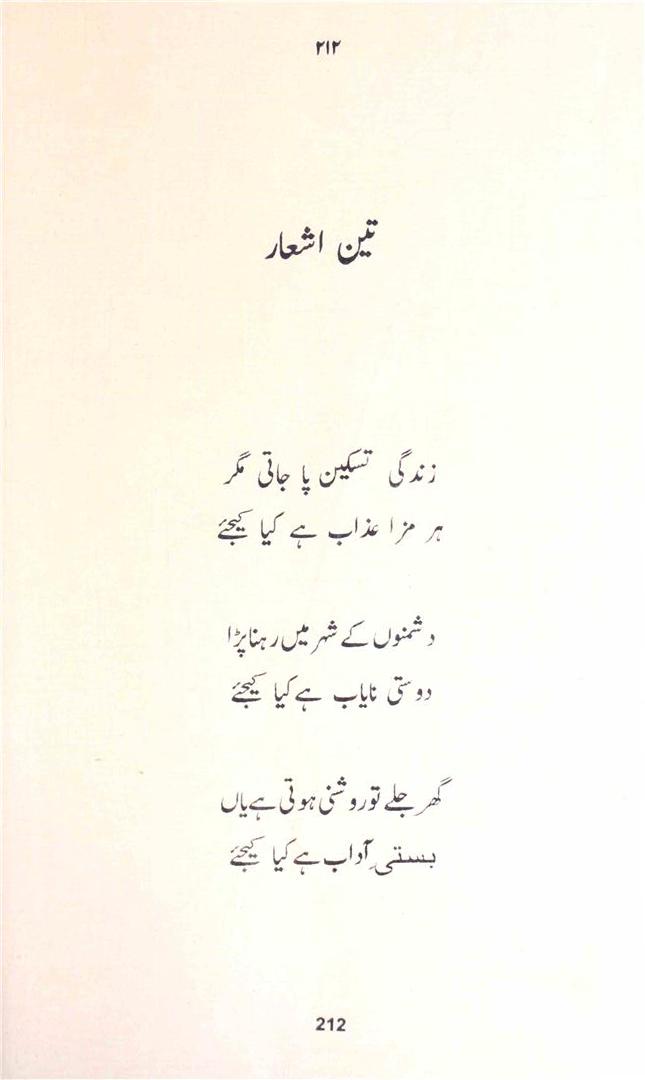 ۲۱۲
تین اشعار
زندگی تسکین پا جاتی مگر
ہر مزا عذاب ہے کیا کیجئے
دشمنوں کے شہر میں رہنا پڑا
دوستی نایاب ہے کیا کیجئے
گھر جلے تو روشنی ہوتی ہے یاں
بستیِ آداب ہے کیا کیجئے
212